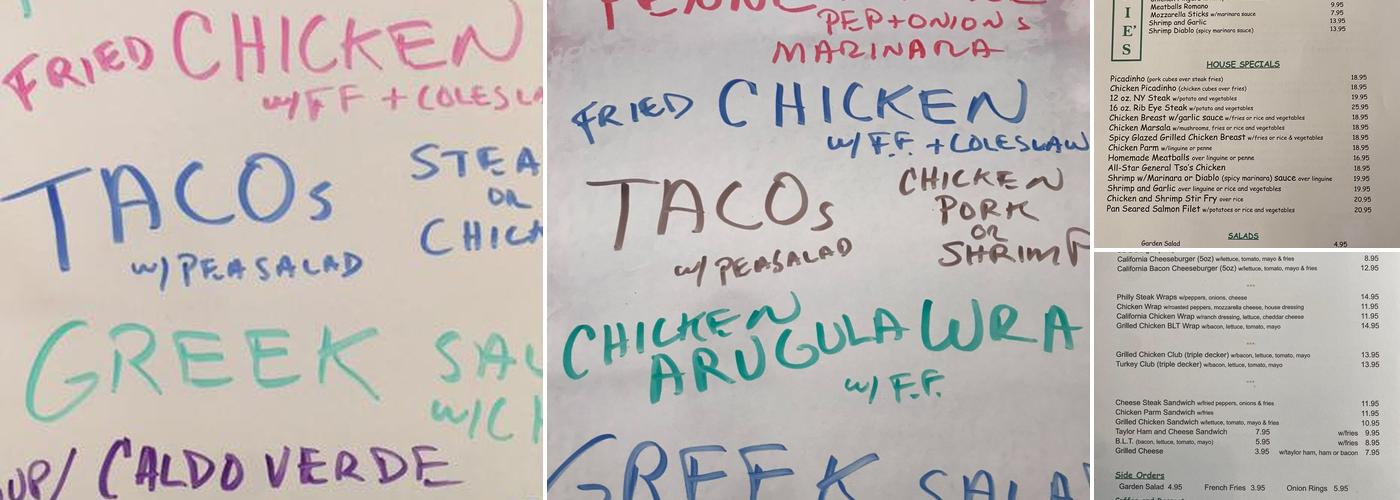 FRIED CHICKEN
w/FF + COLESLA
TACOs
w/ PEASALAD
STEA
OR
CHICK
GREEK SAL
W/CH
UP/ CALDO VERDE
PEP+ONIONs
MARINARA
FRIED CHICKEN
w/ F.F. + COLESLAW
TACOs
w/ PEASALAD
CHICKEN
PORK
OR
SHRIMP
CHICKEN
ARUGULA WRA
w/ F.F.
GREEK SALA
I
E'
S
Meatballs Romano 9.95
Mozzarella Sticks w/marinara sauce 7.95
Shrimp and Garlic 13.95
Shrimp Diablo (spicy marinara sauce) 13.95
HOUSE SPECIALS
Picadinho (pork cubes over steak fries) 18.95
Chicken Picadinho (chicken cubes over fries) 18.95
12 oz. NY Steak w/potato and vegetables 19.95
16 oz. Rib Eye Steak w/potato and vegetables 25.95
Chicken Breast w/garlic sauce w/fries or rice and vegetables 18.95
Chicken Marsala w/mushrooms, fries or rice and vegetables 18.95
Spicy Glazed Grilled Chicken Breast w/fries or rice & vegetables 18.95
Chicken Parm w/linguine or penne 18.95
Homemade Meatballs over linguine or penne 16.95
All-Star General Tso's Chicken 18.95
Shrimp w/Marinara or Diablo (spicy marinara) sauce over linguine 19.95
Shrimp and Garlic over linguine or rice and vegetables 19.95
Chicken and Shrimp Stir Fry over rice 20.95
Pan Seared Salmon Filet w/potatoes or rice and vegetables 20.95
SALADS
Garden Salad 4.95
California Cheeseburger (5oz) w/lettuce, tomato, mayo & fries 8.95
California Bacon Cheeseburger (5oz) w/lettuce, tomato, mayo & fries 12.95
***
Philly Steak Wraps w/peppers, onions, cheese 14.95
Chicken Wrap w/roasted peppers, mozzarella cheese, house dressing 11.95
California Chicken Wrap w/ranch dressing, lettuce, cheddar cheese 11.95
Grilled Chicken BLT Wrap w/bacon, lettuce, tomato, mayo 14.95
***
Grilled Chicken Club (triple decker) w/bacon, lettuce, tomato, mayo 13.95
Turkey Club (triple decker) w/bacon, lettuce, tomato, mayo 13.95
***
Cheese Steak Sandwich w/fried peppers, onions & fries 11.95
Chicken Parm Sandwich w/fries 11.95
Grilled Chicken Sandwich w/lettuce, tomato, mayo & fries 10.95
Taylor Ham and Cheese Sandwich 7.95 w/fries 9.95
B.L.T. (bacon, lettuce, tomato, mayo) 5.95 w/fries 8.95
Grilled Cheese 3.95 w/taylor ham, ham or bacon 7.95
Side Orders
Garden Salad 4.95 French Fries 3.95 Onion Rings 5.95